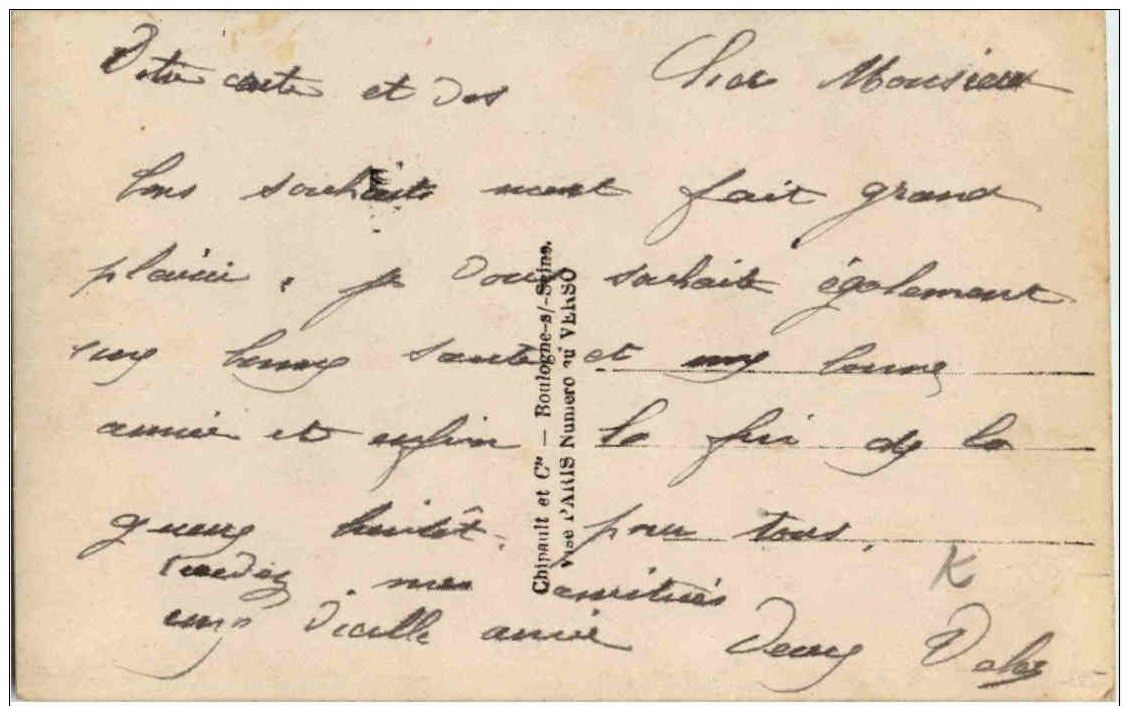 Cher Monsieur
Votre carte et vos
bons souhaits m'ont fait grand
plaisir, je vous souhaite également
une bonne santé et une bonne
année et enfin la fin de la
guerre bientôt, pour tous.
mes amitiés
une vieille amie
K
Chipault et Cie — Boulogne-s/-Seine.
Visé PARIS Numero au VERSO